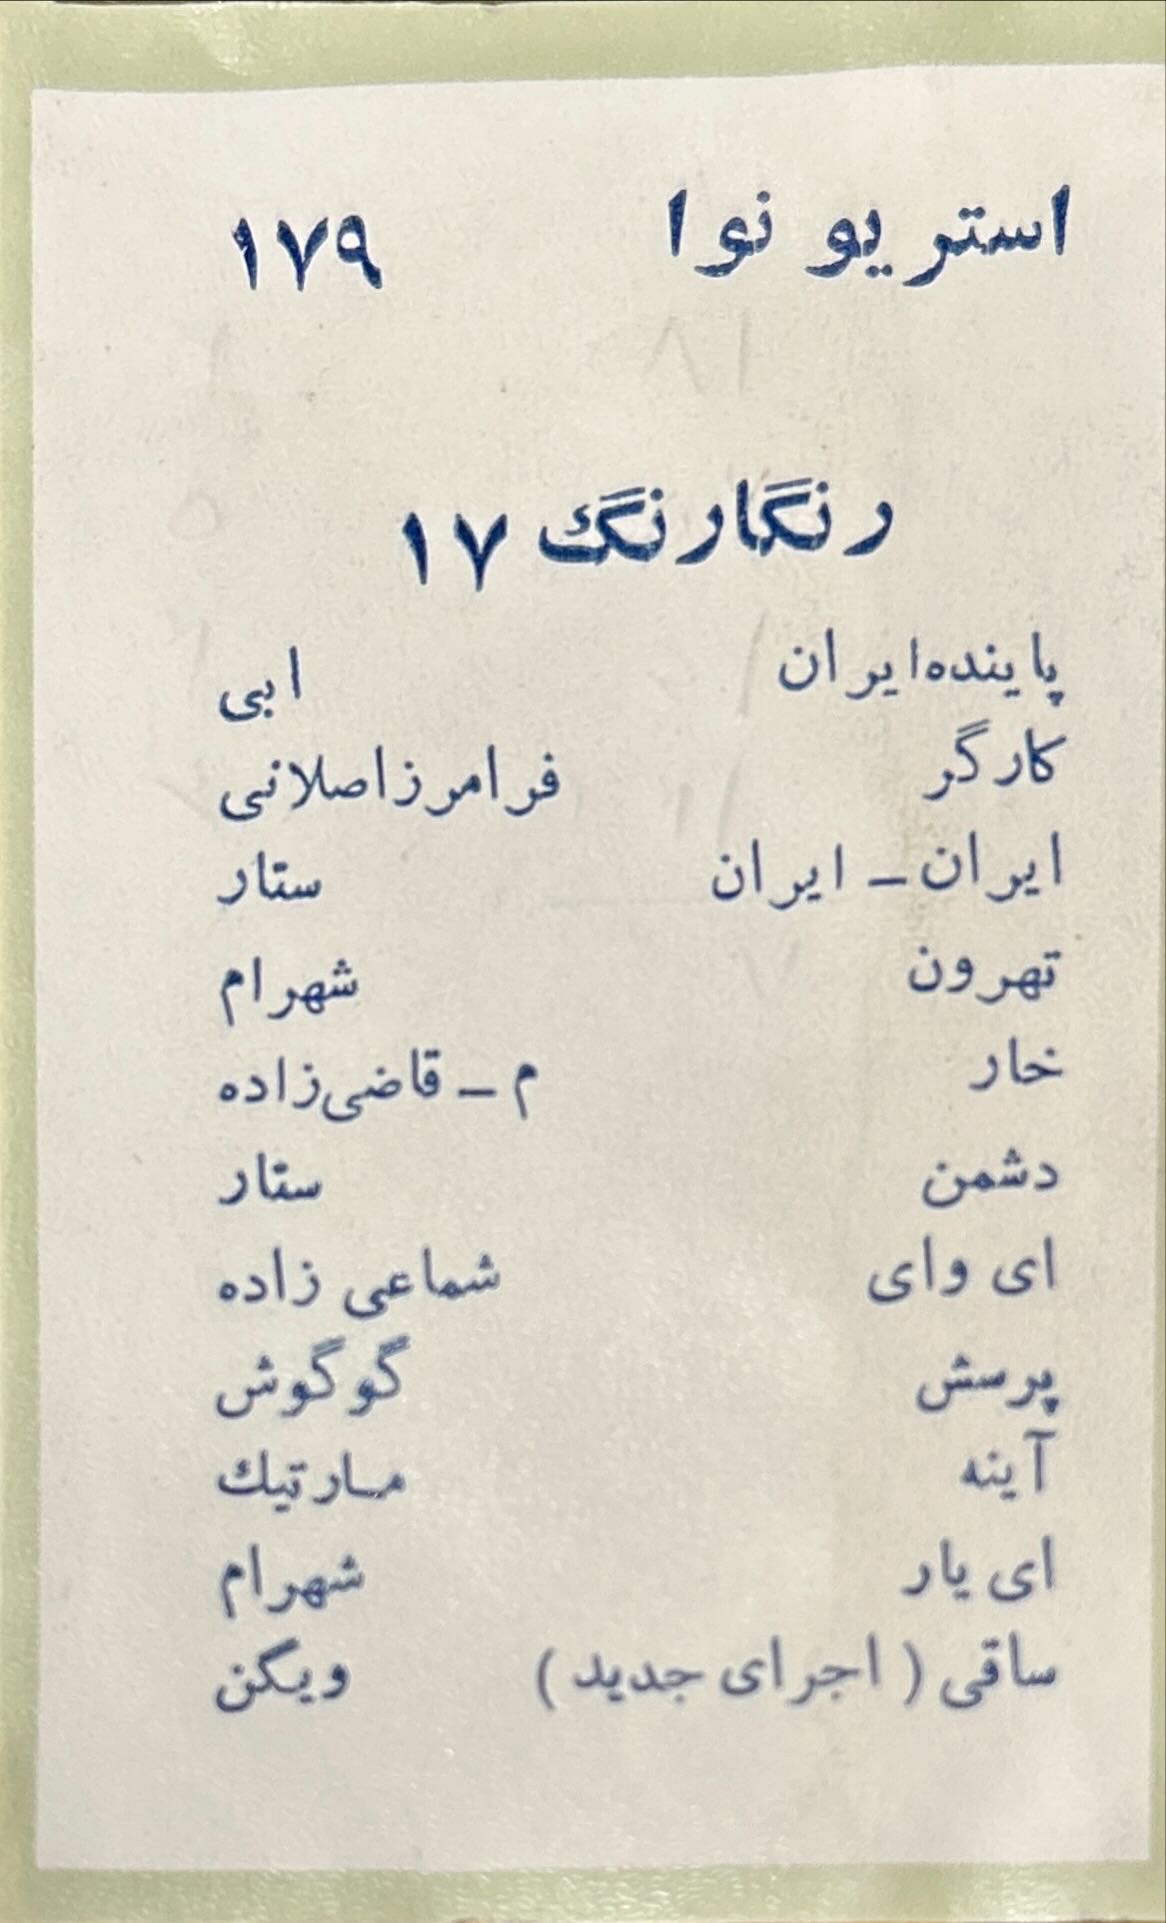 استریو نوا ۱۷۹
رنگارنگ ۱۷
پاینده ایران ابی
کارگر فرامرز اصلانی
ایران ـ ایران ستار
تهرون شهرام
خار م ـ قاضی‌زاده
دشمن ستار
ای وای شماعی زاده
پرسش گوگوش
آینه مارتیك
ای یار شهرام
ساقی ( اجرای جدید ) ویگن